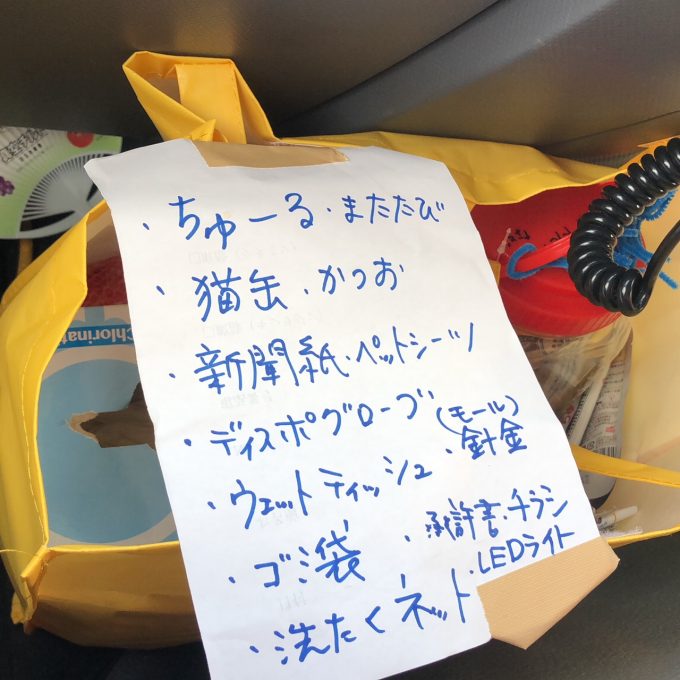 ・ちゅーる・またたび
・猫缶、かつお
・新聞紙・ペットシーツ
・ディスポグローブ
(モール)
・針金
・ウェットティッシュ
・ゴミ袋
・承諾書・チラシ
・LEDライト
・洗たくネット
Chlorinat